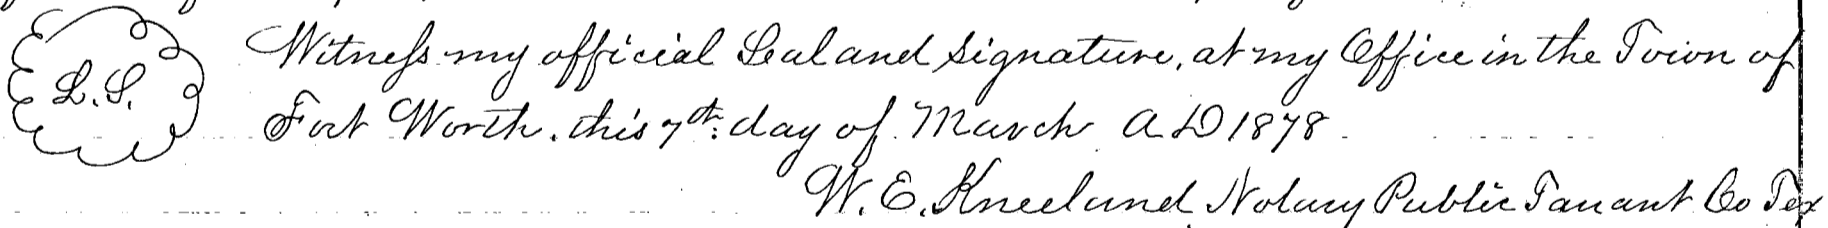 L.S.
Witness my official Seal and signature, at my Office in the Town of
Fort Worth, this 7th. day of March A D 1878
W. E. Kneeland Notary Public Tarrant Co Tex